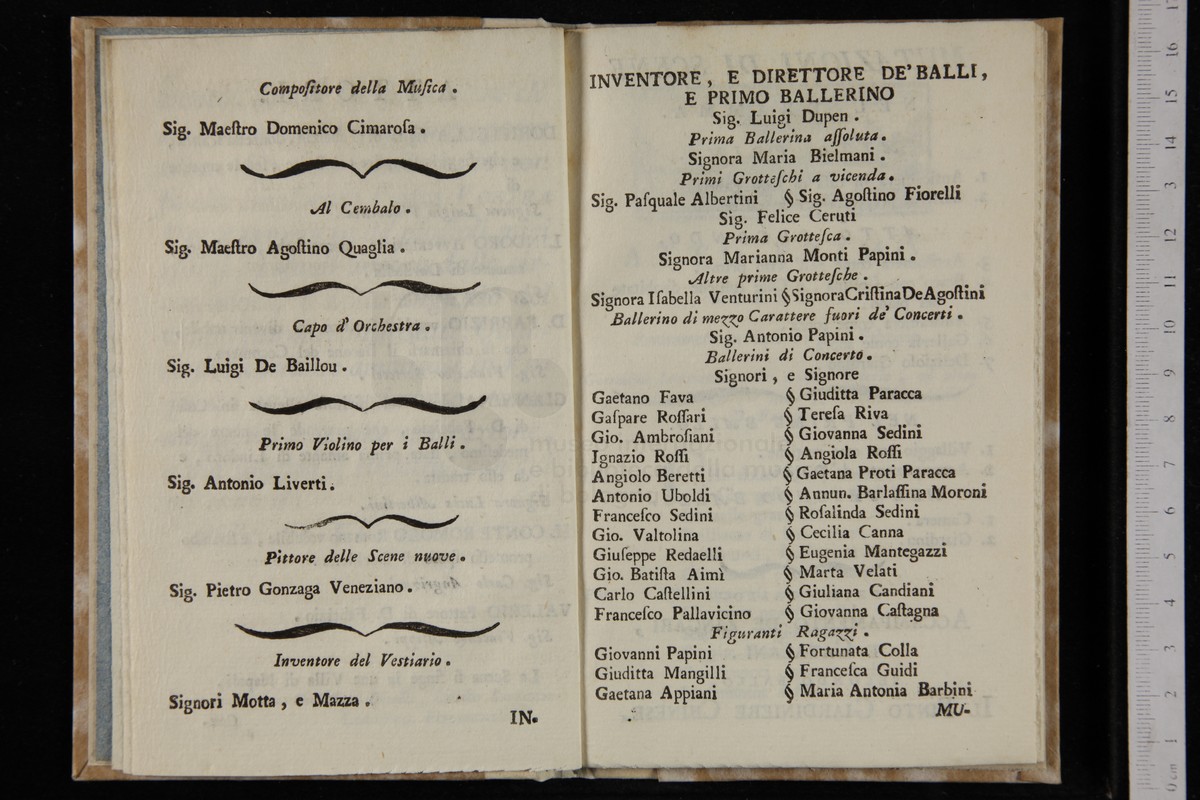 Compoſitore della Muſica .
Sig. Maeſtro Domenico Cimaroſa .
Al Cembalo .
Sig. Maeſtro Agoſtino Quaglia .
Capo d' Orcheſtra .
Sig. Luigi De Baillou .
Primo Violino per i Balli .
Sig. Antonio Liverti .
Pittore delle Scene nuove .
Sig. Pietro Gonzaga Veneziano .
Inventore del Veſtiario .
Signori Motta , e Mazza .
IN-
INVENTORE , E DIRETTORE DE' BALLI ,
E PRIMO BALLERINO
Sig. Luigi Dupen .
Prima Ballerina aſſoluta .
Signora Maria Bielmani .
Primi Grotteſchi a vicenda .
Sig. Paſquale Albertini § Sig. Agoſtino Fiorelli
Sig. Felice Ceruti
Prima Grotteſca .
Signora Marianna Monti Papini .
Altre prime Grotteſche .
Signora Iſabella Venturini § Signora Criſtina De Agoſtini
Ballerino di mezzo Carattere fuori de' Concerti .
Sig. Antonio Papini .
Ballerini di Concerto .
Signori , e Signore
Gaetano Fava § Giuditta Paracca
Gaſpare Roſſari § Tereſa Riva
Gio. Ambroſiani § Giovanna Sedini
Ignazio Roſſi § Angiola Roſſi
Angiolo Beretti § Gaetana Proti Paracca
Antonio Uboldi § Annun. Barlaſſina Moroni
Franceſco Sedini § Roſalinda Sedini
Gio. Valtolina § Cecilia Canna
Giuſeppe Redaelli § Eugenia Mantegazzi
Gio. Batiſta Aimì § Marta Velati
Carlo Caſtellini § Giuliana Candiani
Franceſco Pallavicino § Giovanna Caſtagna
Figuranti Ragazzi .
Giovanni Papini § Fortunata Colla
Giuditta Mangilli § Franceſca Guidi
Gaetana Appiani § Maria Antonia Barbini
MU-